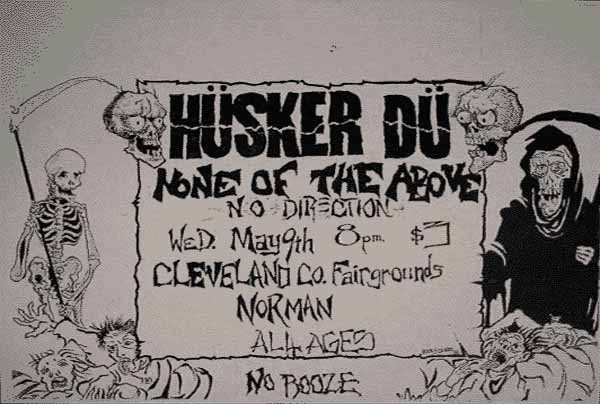 HÜSKER DÜ
NONE OF THE ABOVE
NO DIRECTION
WED. May 9th 8 pm. $3
CLEVELAND CO. Fairgrounds
NORMAN
ALL AGES
NO BOOZE